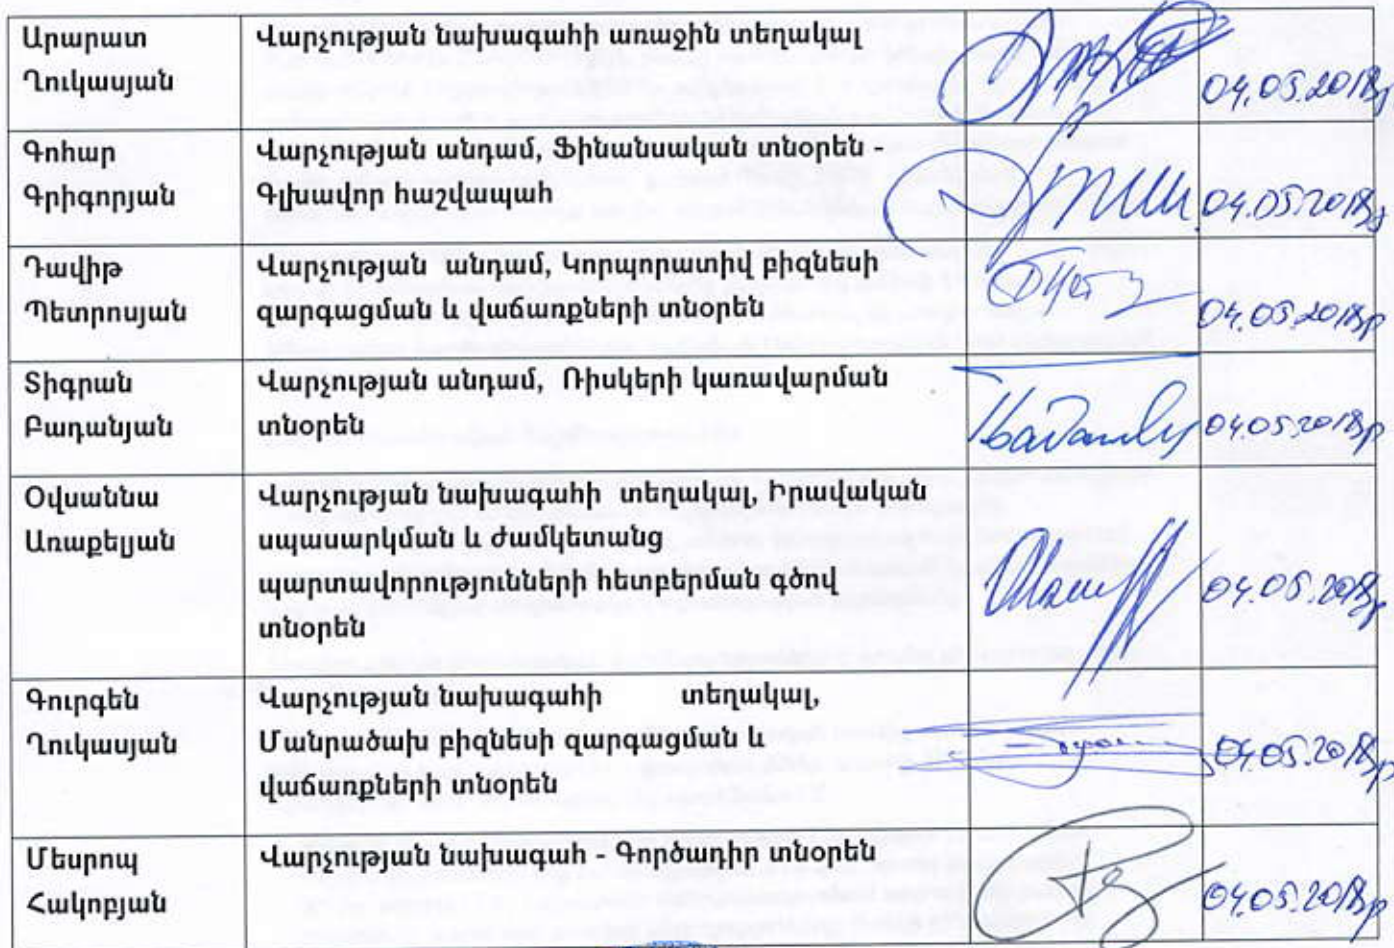 Արարատ
Ղուկասյան
Վարչության նախագահի առաջին տեղակալ
04.05.2018թ
Գոհար
Գրիգորյան
Վարչության անդամ, Ֆինանսական տնօրեն -
Գլխավոր հաշվապահ
04.05.2018թ
Դավիթ
Պետրոսյան
Վարչության անդամ, Կորպորատիվ բիզնեսի
զարգացման և վաճառքների տնօրեն
04.05.2018թ
Տիգրան
Բադանյան
Վարչության անդամ, Ռիսկերի կառավարման
տնօրեն
04.05.2018թ
Օվսաննա
Առաքելյան
Վարչության նախագահի տեղակալ, Իրավական
սպասարկման և ժամկետանց
պարտավորությունների հետբերման գծով
տնօրեն
04.05.2018թ
Գուրգեն
Ղուկասյան
Վարչության նախագահի տեղակալ,
Մանրածախ բիզնեսի զարգացման և
վաճառքների տնօրեն
04.05.2018թ
Մեսրոպ
Հակոբյան
Վարչության նախագահ - Գործադիր տնօրեն
04.05.2018թ